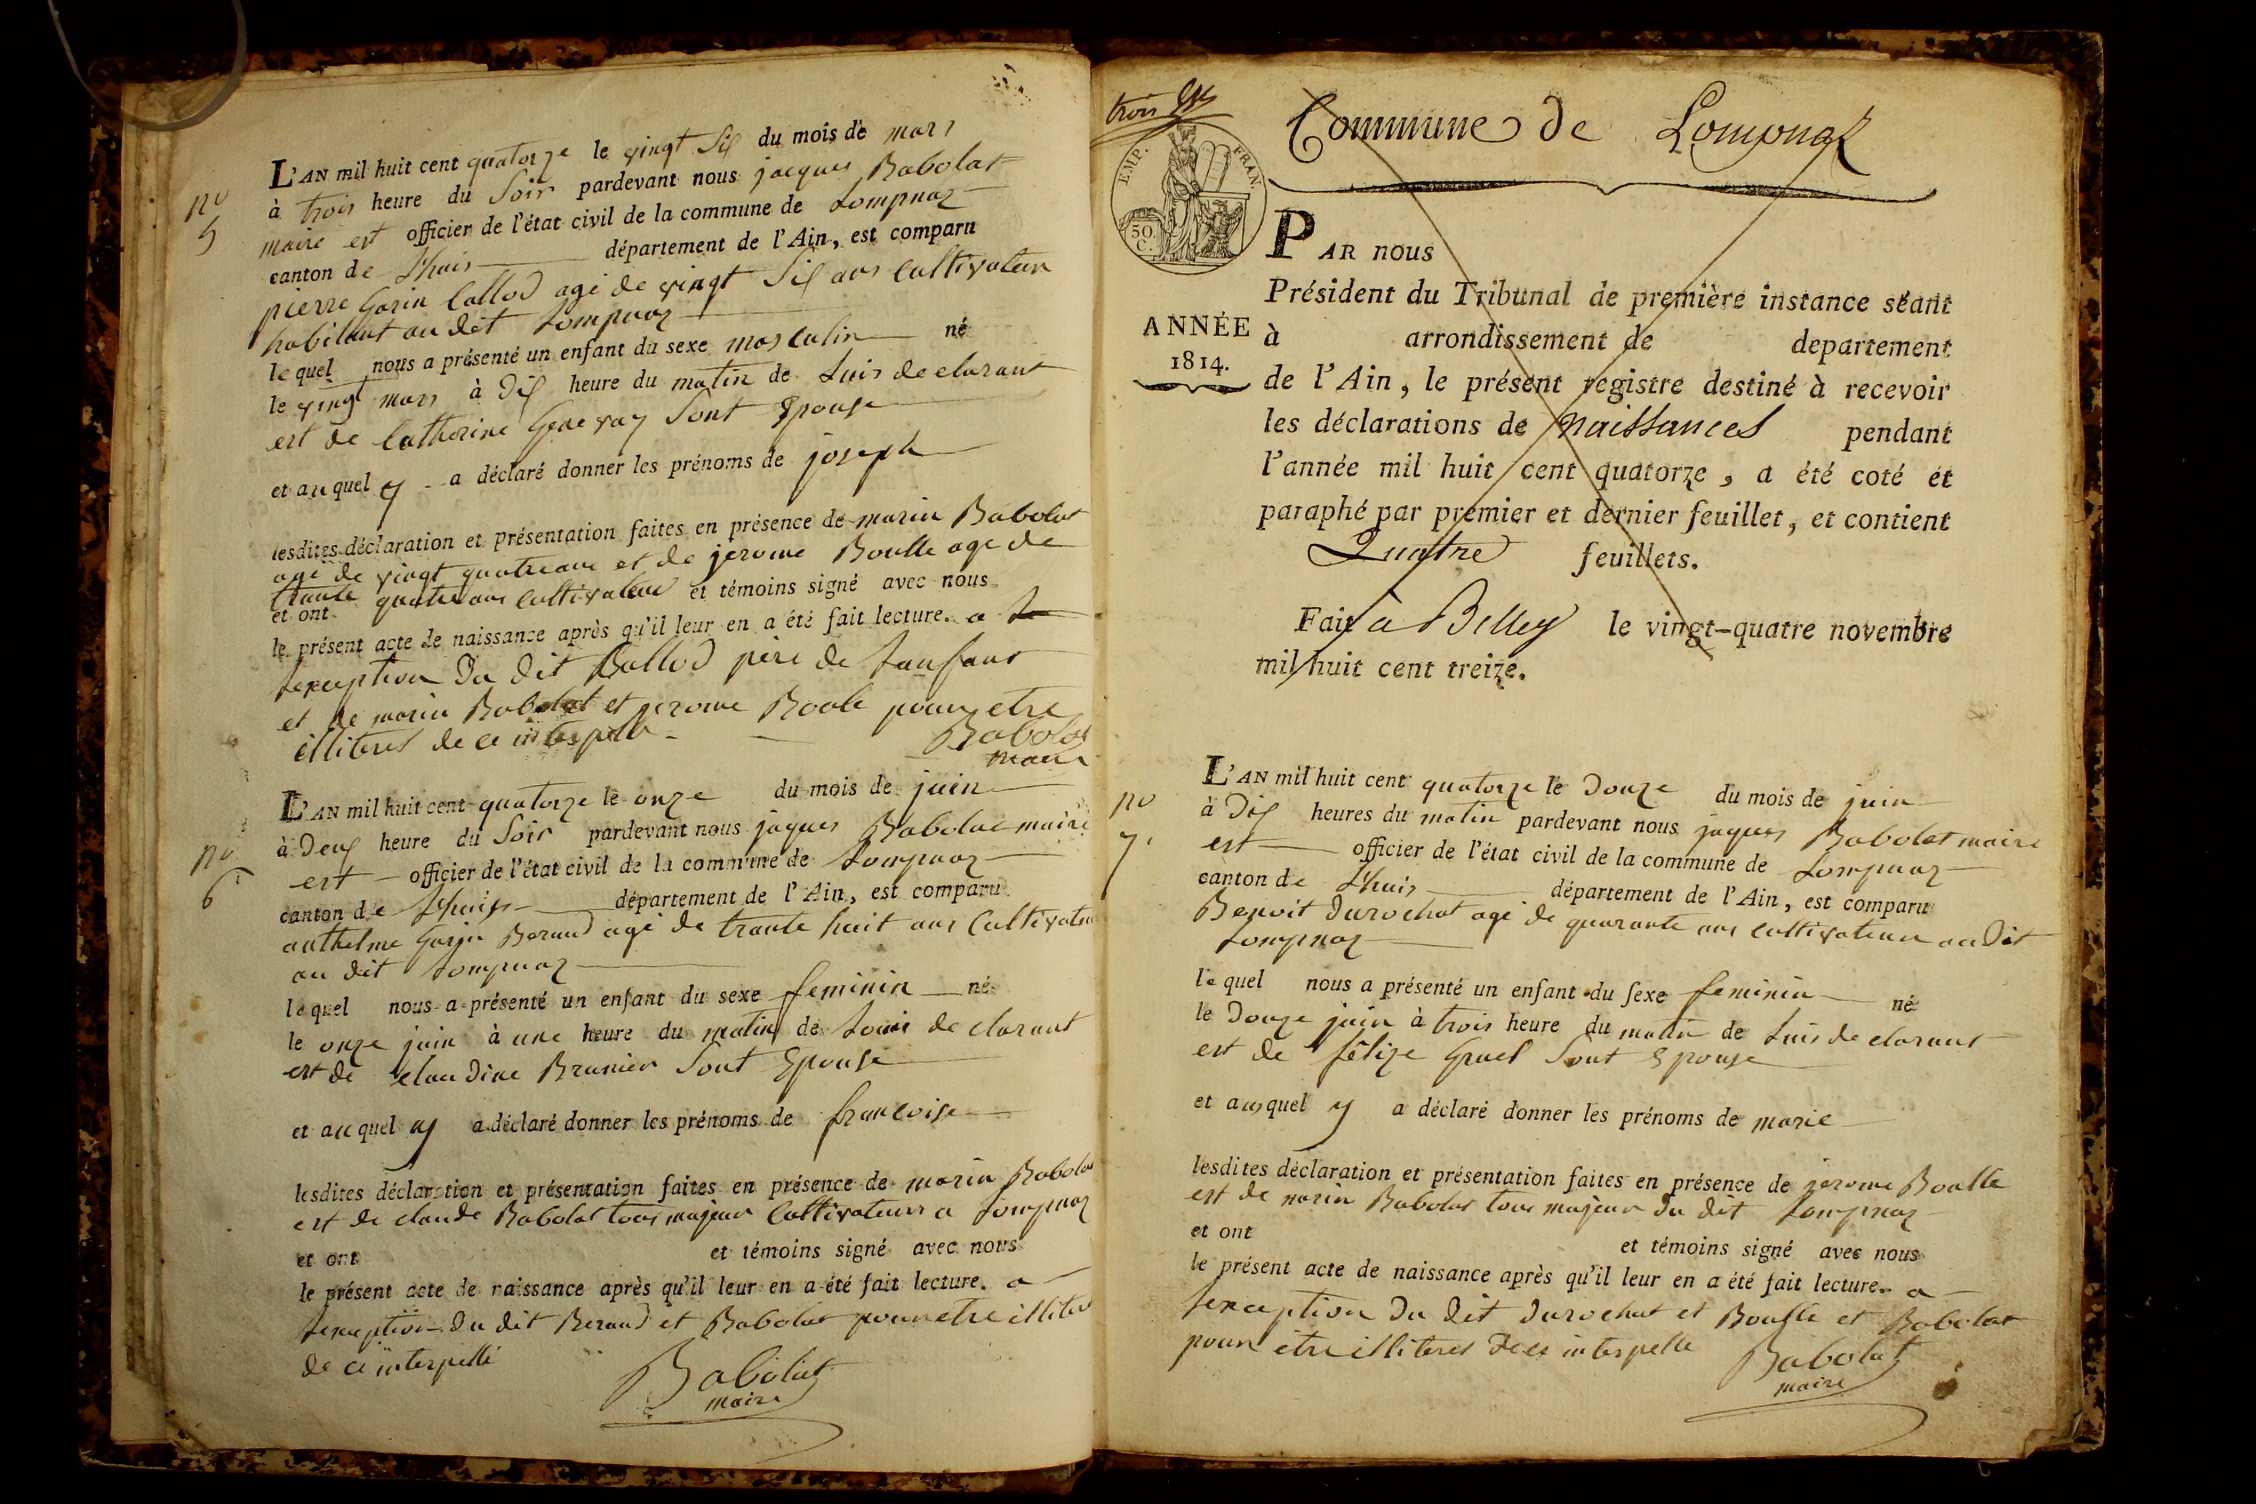 no
5
L'AN mil huit cent quatorze le vingt Six du mois de mars
à trois heure du Soir pardevant nous jacques Babolat
maire est officier de l'état civil de la commune de Lompnaz
canton de Lhuis département de l'Ain, est comparu
pierre Gorin Callod agé de vingt Six ans Cultivateur
habitant au dit Lompnaz
le quel nous a présenté un enfant du sexe masculin né
le vingt mars à Dix heure du matin de Luis declarant
est de Catherine Genevay Sont Epouse
et au quel y a déclaré donner les prénoms de joseph
lesdites déclaration et présentation faites en présence de marin Babolat
agé de vingt quatre ans et de jerome Boulle age de
trante quatre ans Cultivateur
et ont et témoins signé avec nous
le présent acte de naissance après qu'il leur en a été fait lecture. a L
Lexception Du Dit Callod père de Lanfant
et de marin Babolat et jerome Boole pour etre
illiteres de ce interpellé
Babolat
maire
no
6
L'AN mil huit cent quatorze le onze du mois de juin
à Deux heure du Soir pardevant nous jaques Babolat maire
est officier de l'état civil de la commune de Lompnaz
canton de Lhuis département de l'Ain, est comparu
anthelme Gorjn Beraud agé de trante huit ans Cultivateur
au dit Lompnaz
le quel nous a présenté un enfant du sexe feminin né
le onze juin à une heure du matin de Louis de clarant
est de claudine Brunier Sont Epouse
et au quel y a déclaré donner les prénoms de francoise
lesdites déclaration et présentation faites en présence de marin Babolat
est de claude Babolat tous majeur Cultivateurs a Lompnaz
et ont et témoins signé avec nous
le présent acte de naissance après qu'il leur en a été fait lecture. a
Lexception Du dit Beraud et Babolat pour etre illiteres
de ce interpellé
Babolat
maire
trois
EMP. FRAN.
50.
C.
Commune de Lompnaz
PAR nous
Président du Tribunal de première instance séant
à arrondissement de departement
ANNÉE
1814.
de l'Ain, le présent registre destiné à recevoir
les déclarations de Naissances pendant
l'année mil huit cent quatorze, a été coté et
paraphé par premier et dernier feuillet, et contient
Quatre feuillets.
Fait à Belley le vingt-quatre novembre
mil huit cent treize.
no
7.
L'AN mil huit cent quatorze le Douze du mois de juin
à Dix heures du matin pardevant nous jaques Babolat maire
est officier de l'état civil de la commune de Lompnaz
canton de Lhuis département de l'Ain, est comparu
Benoit Durochat agé de quarante ans cultivateur au Dit
Lompnaz
le quel nous a présenté un enfant du sexe feminin né
le Douze juin à trois heure du matin de Luis de clarant
est de félize Gruel Sont Epouse
et auquel y a déclaré donner les prénoms de marie
lesdites déclaration et présentation faites en présence de jerome Boulle
est de marin Babolat tous majeur du dit Lompnaz
et ont et témoins signé avec nous
le présent acte de naissance après qu'il leur en a été fait lecture. a
Lexception Du Dit Durochat et Boulle et Babolat
pour etre illiteres de ce interpelle
Babolat
maire